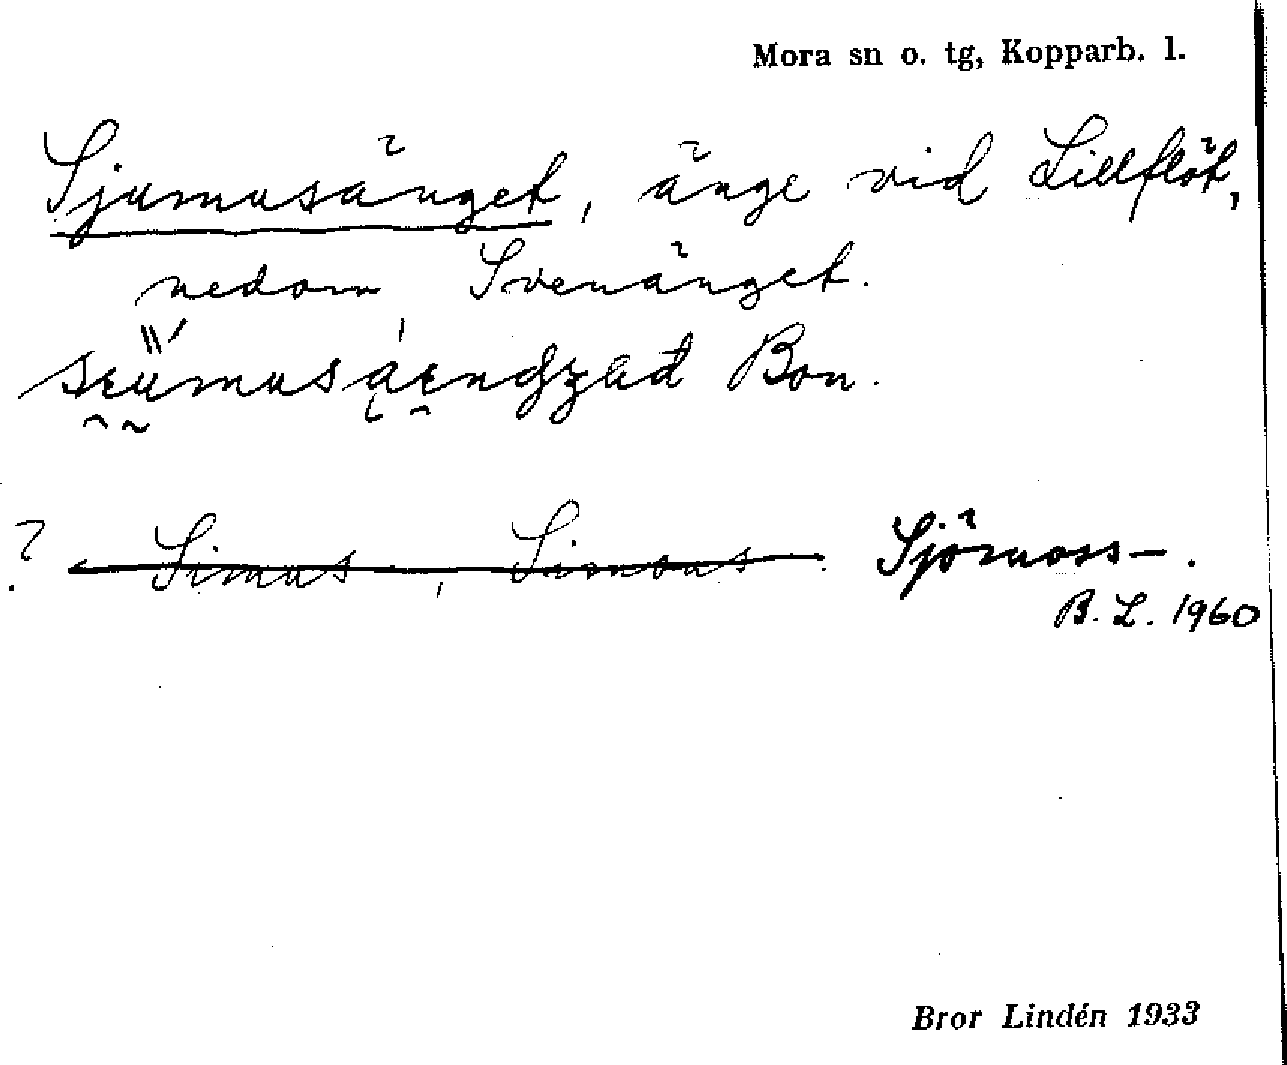 Mora sn o. tg, Kopparb. l.
Sjumusänget, änge vid Lillflöt,
nedom Svenänget.
Bon.
? Simus, Simons. Sjömoss-.
B. L. 1960
Bror Lindén 1933